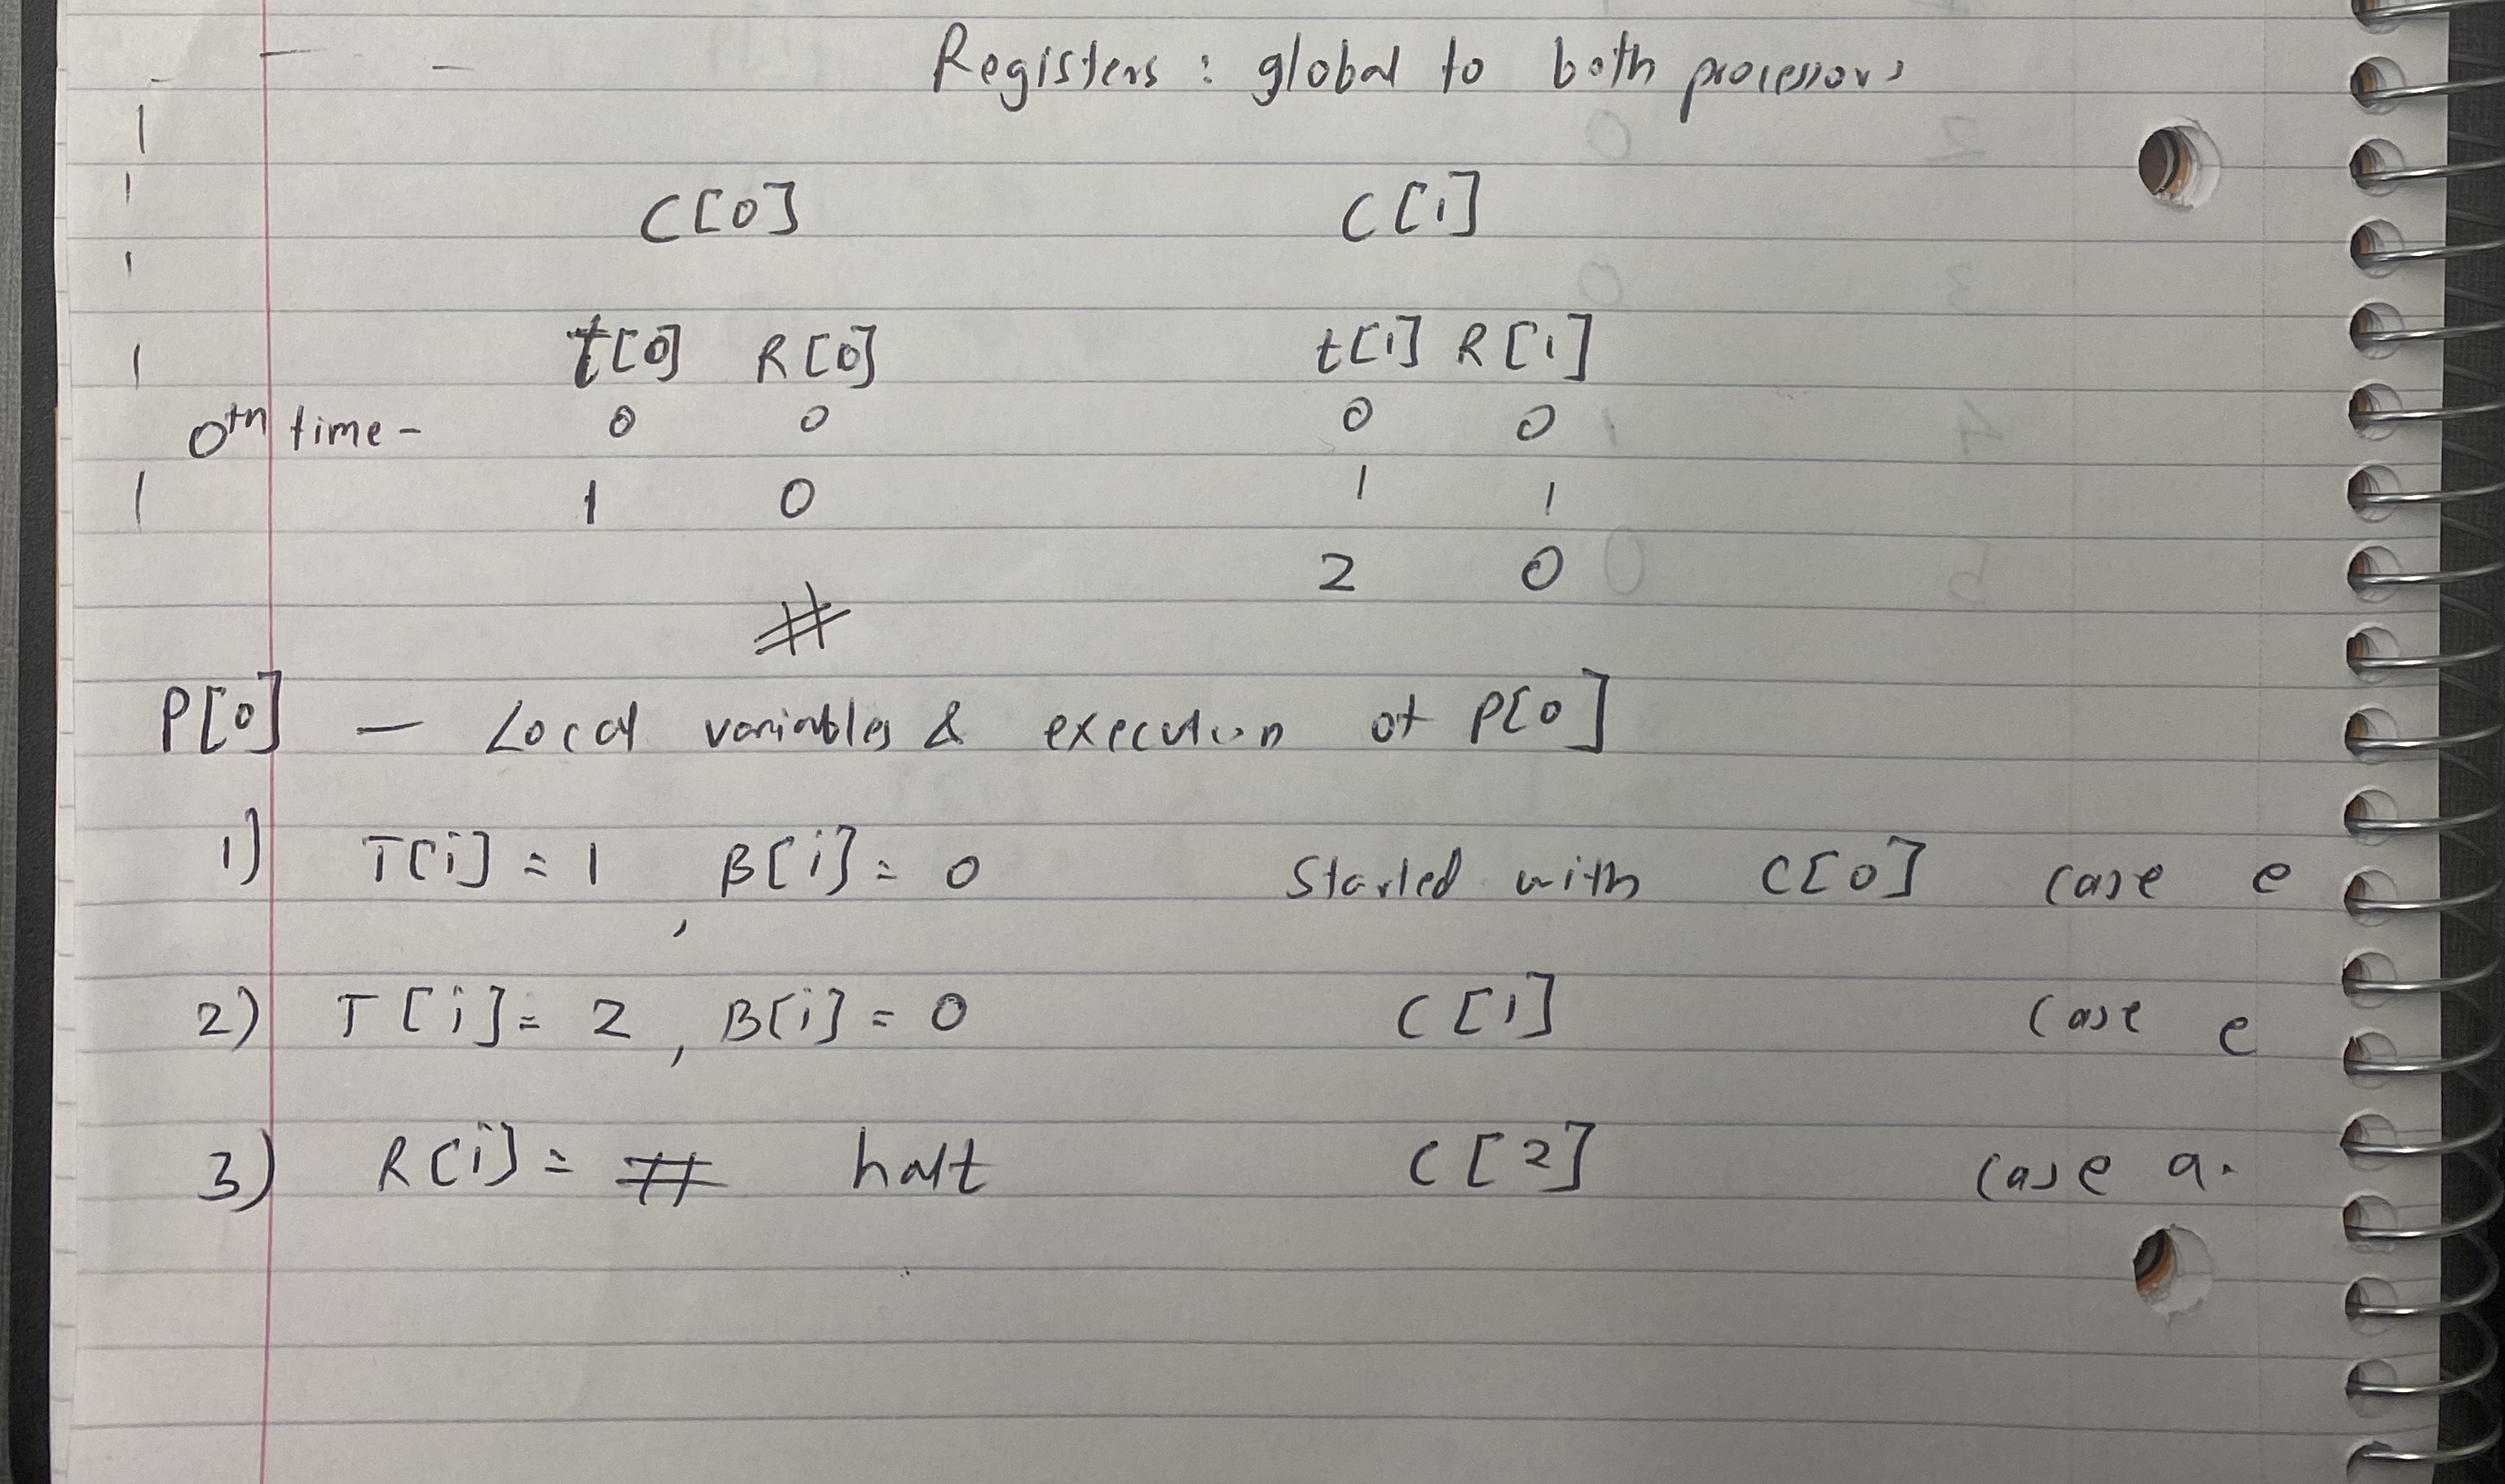 Registers : global to both processors
C[0] C[1]
t[0] R[0] t[1] R[1]
0th time - 0 0 0 0
1 0 1 1
2 0
#
P[0] — Local variables & execution of P[0]
1) T[i] = 1 , B[i] = 0 Started with C[0] case e
2) T[i] = 2 , B[i] = 0 C[1] case e
3) R[i] = # halt C[2] case a.